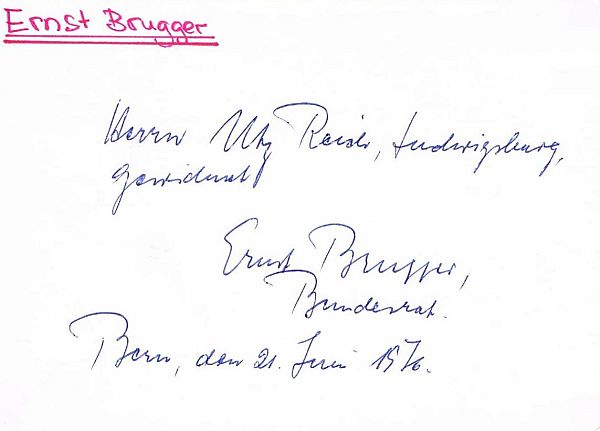 Ernst Brugger
Herrn Utz Ludwigsburg,
gewidmet!
Ernst Brugger,
Bundesrat.
Bern, den 21. Juni 1976.